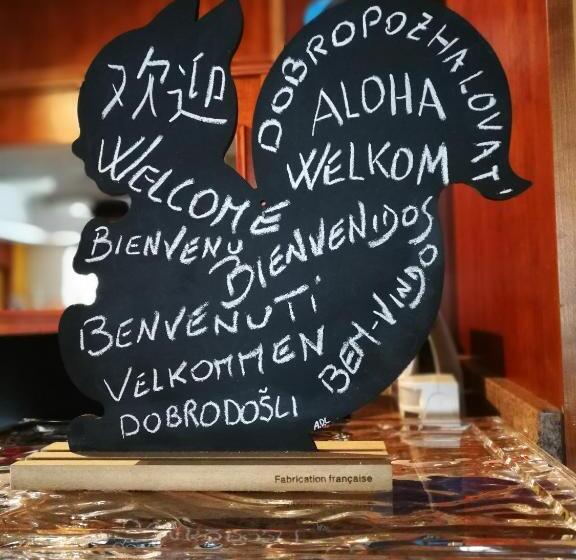 欢迎
DOBROPOZHALOVAT'
ALOHA
WELCOME
WELKOM
BIENVENU
BIENVENIDOS
BENVENUTI
BEM-VINDO
VELKOMMEN
DOBRODOŠLI
ADL
Fabrication française